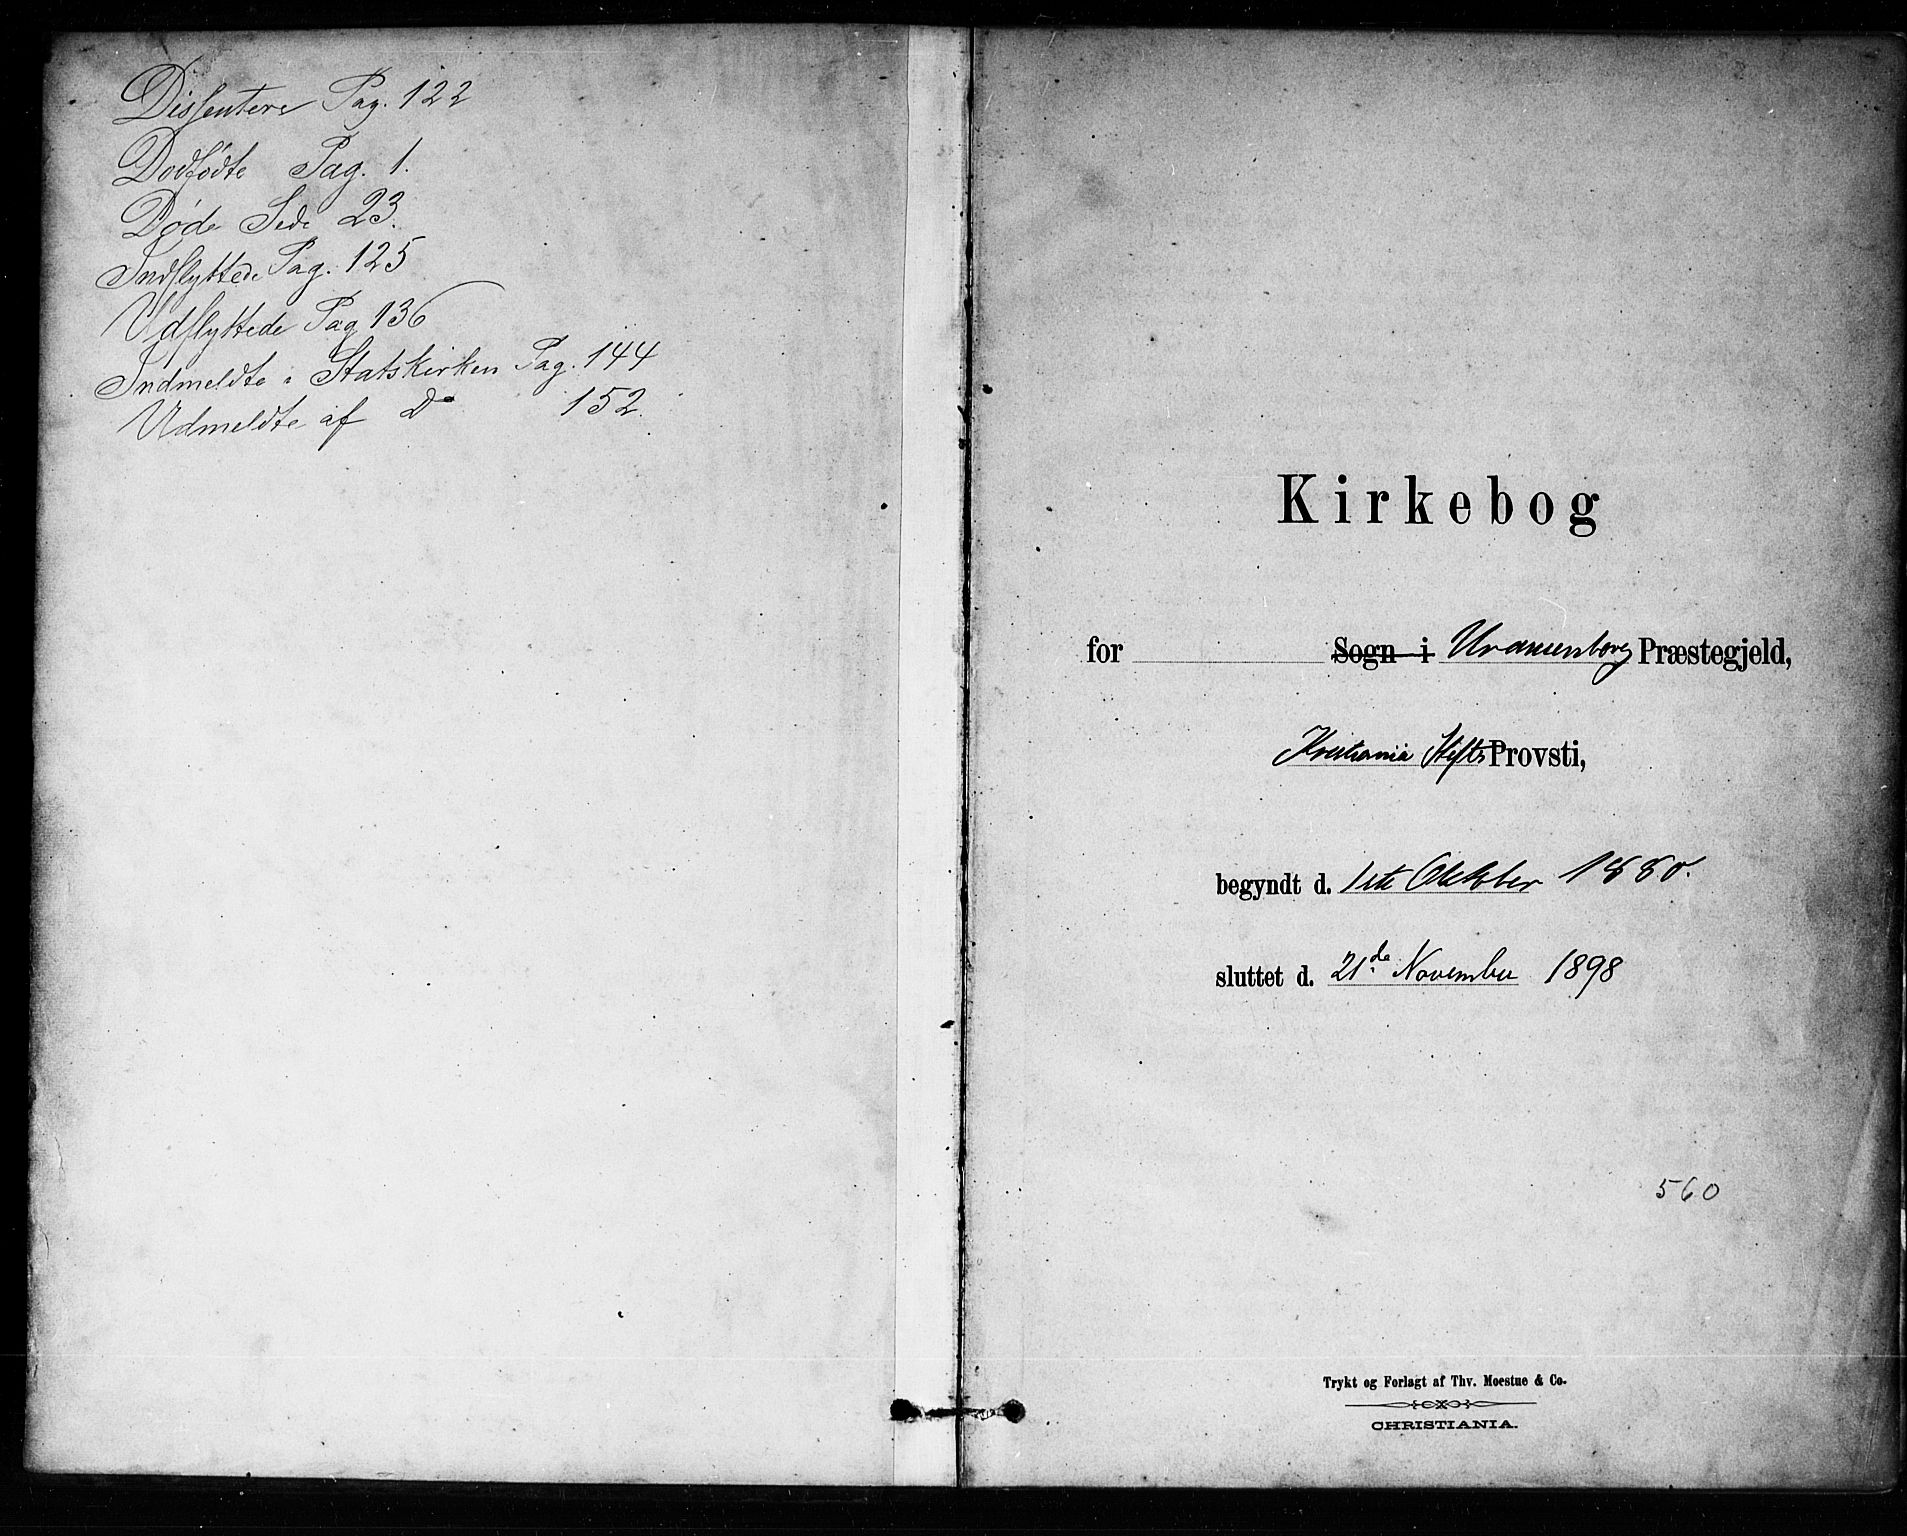 Dissentere Pag. 122
Dødfødte Pag. 1.
Døde Side 23.
Indflyttede Pag. 125
Udflyttede Pag 136
Indmeldte i Statskirken Pag. 144
Udmeldte af Do 152.
Kirkebog
for Sogn i Uranienborg Præstegjeld,
Kristiania Stifts Provsti,
begyndt d. 1ste Oktober 1880.
sluttet d. 21de November 1898
560
Trykt og Forlagt af Thv. Moestue & Co.
CHRISTIANIA.